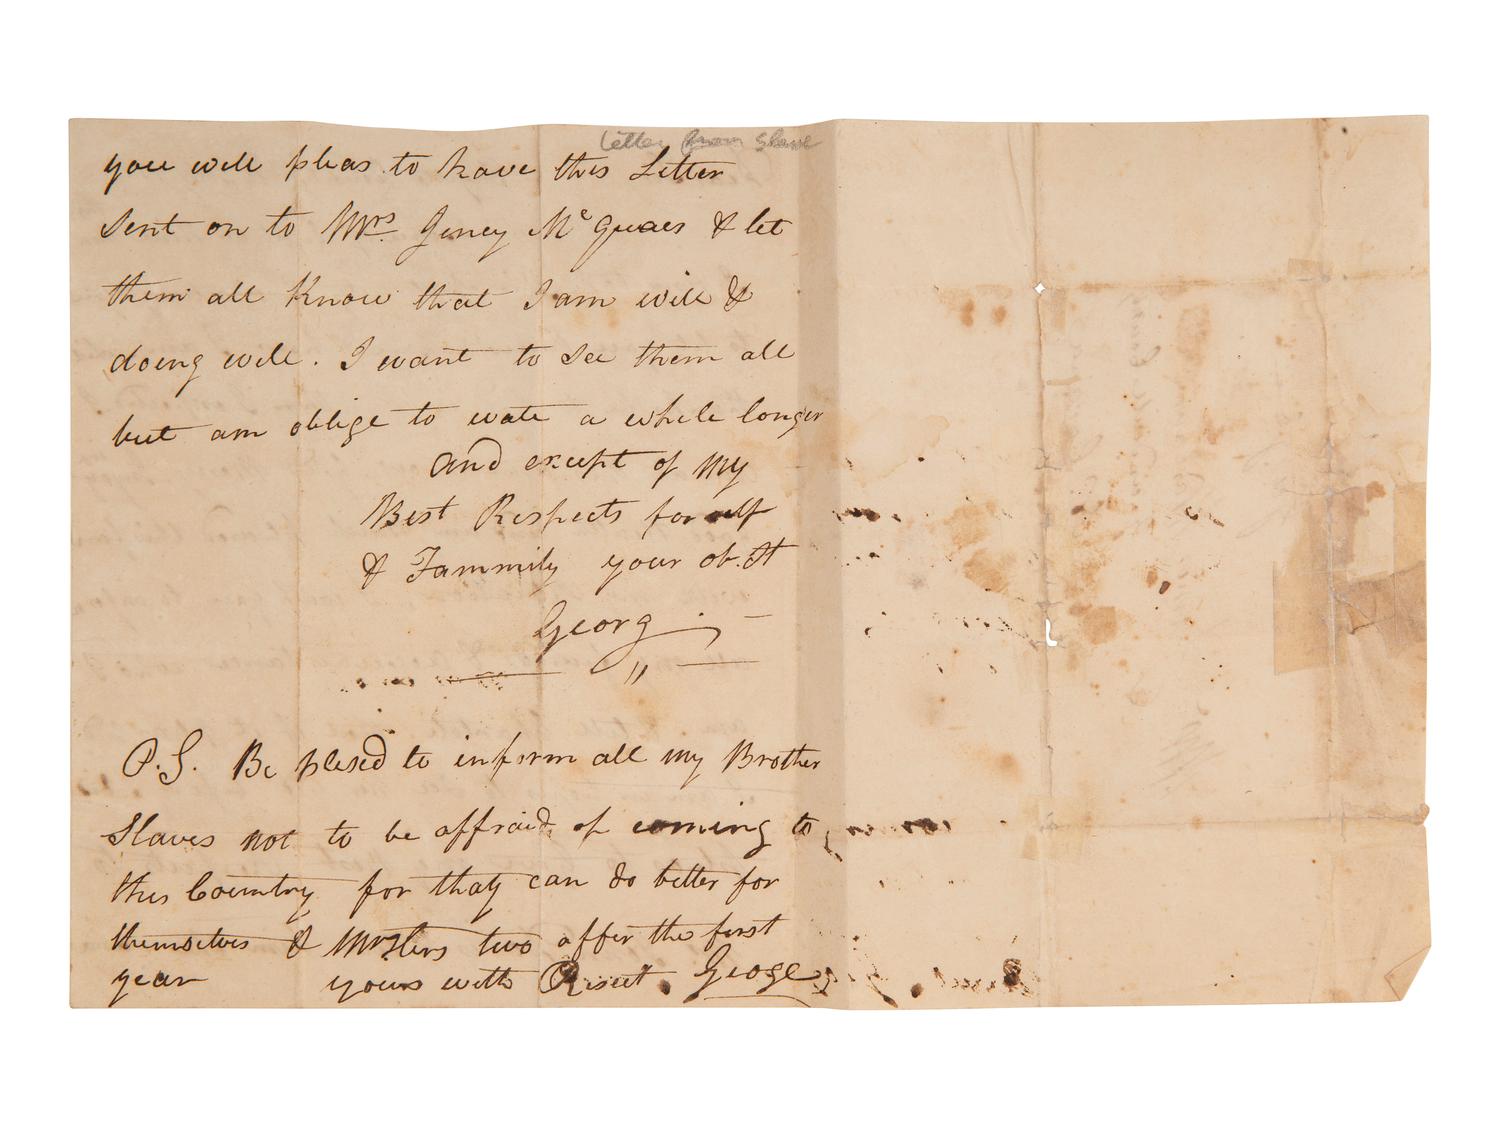 Letter from Slave
you will pleas to have this Letter
sent on to Mrs. Jeney Mc Guaes & let
them all Know that I am well &
doing well. I want to see them all
but am oblige to wate a while longer
and except of My
Best Respects for self
& Fammily your ob. St
Georg
P.S. Be plesed to inform all my Brother
Slaves not to be affraid of coming to
this Country for thay can do better for
themselves & Masters two after the first
year yours with George